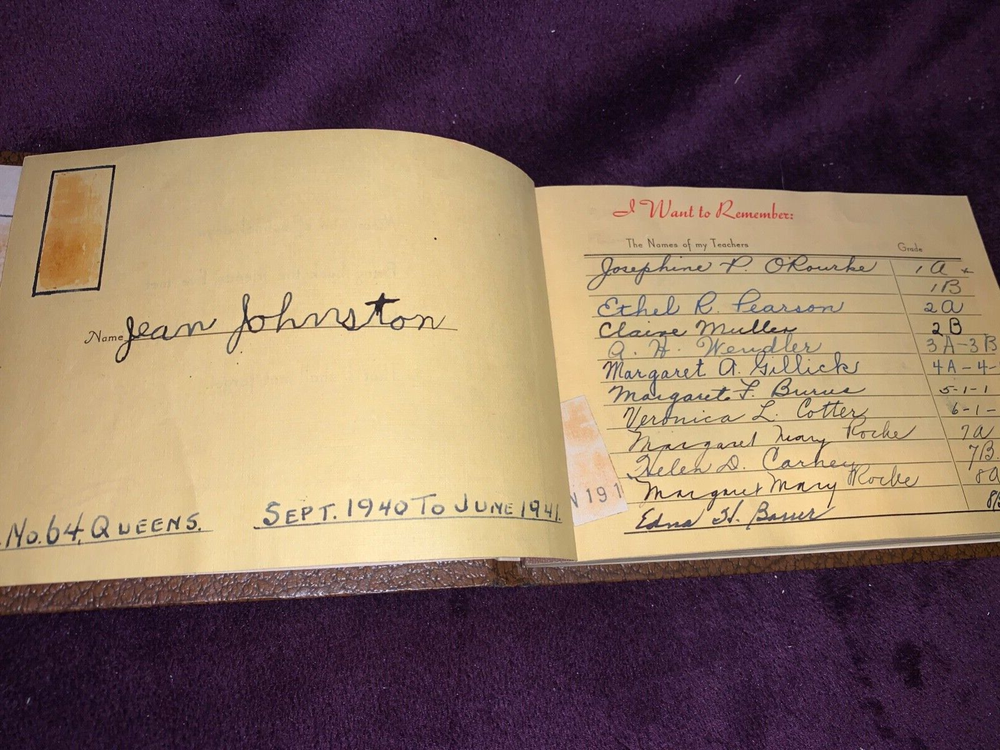 Name Jean Johnston
. No. 64, QUEENS. SEPT. 1940 TO JUNE 1941.
I Want to Remember:
The Names of my Teachers Grade
Josephine P. O'Rourke 1A
1B
Ethel R. Pearson 2A
Claire Muller 2B
A. H. Wendler 3A-3B
Margaret A. Gillick 4A-4-
Margaret F. Burns 5-1-1
Veronica L. Cotter 6-1-
Margaret Mary Roche 7A
Helen D. Carney 7B
Margaret Mary Roche 8A
Edna H. Bauer
N 191